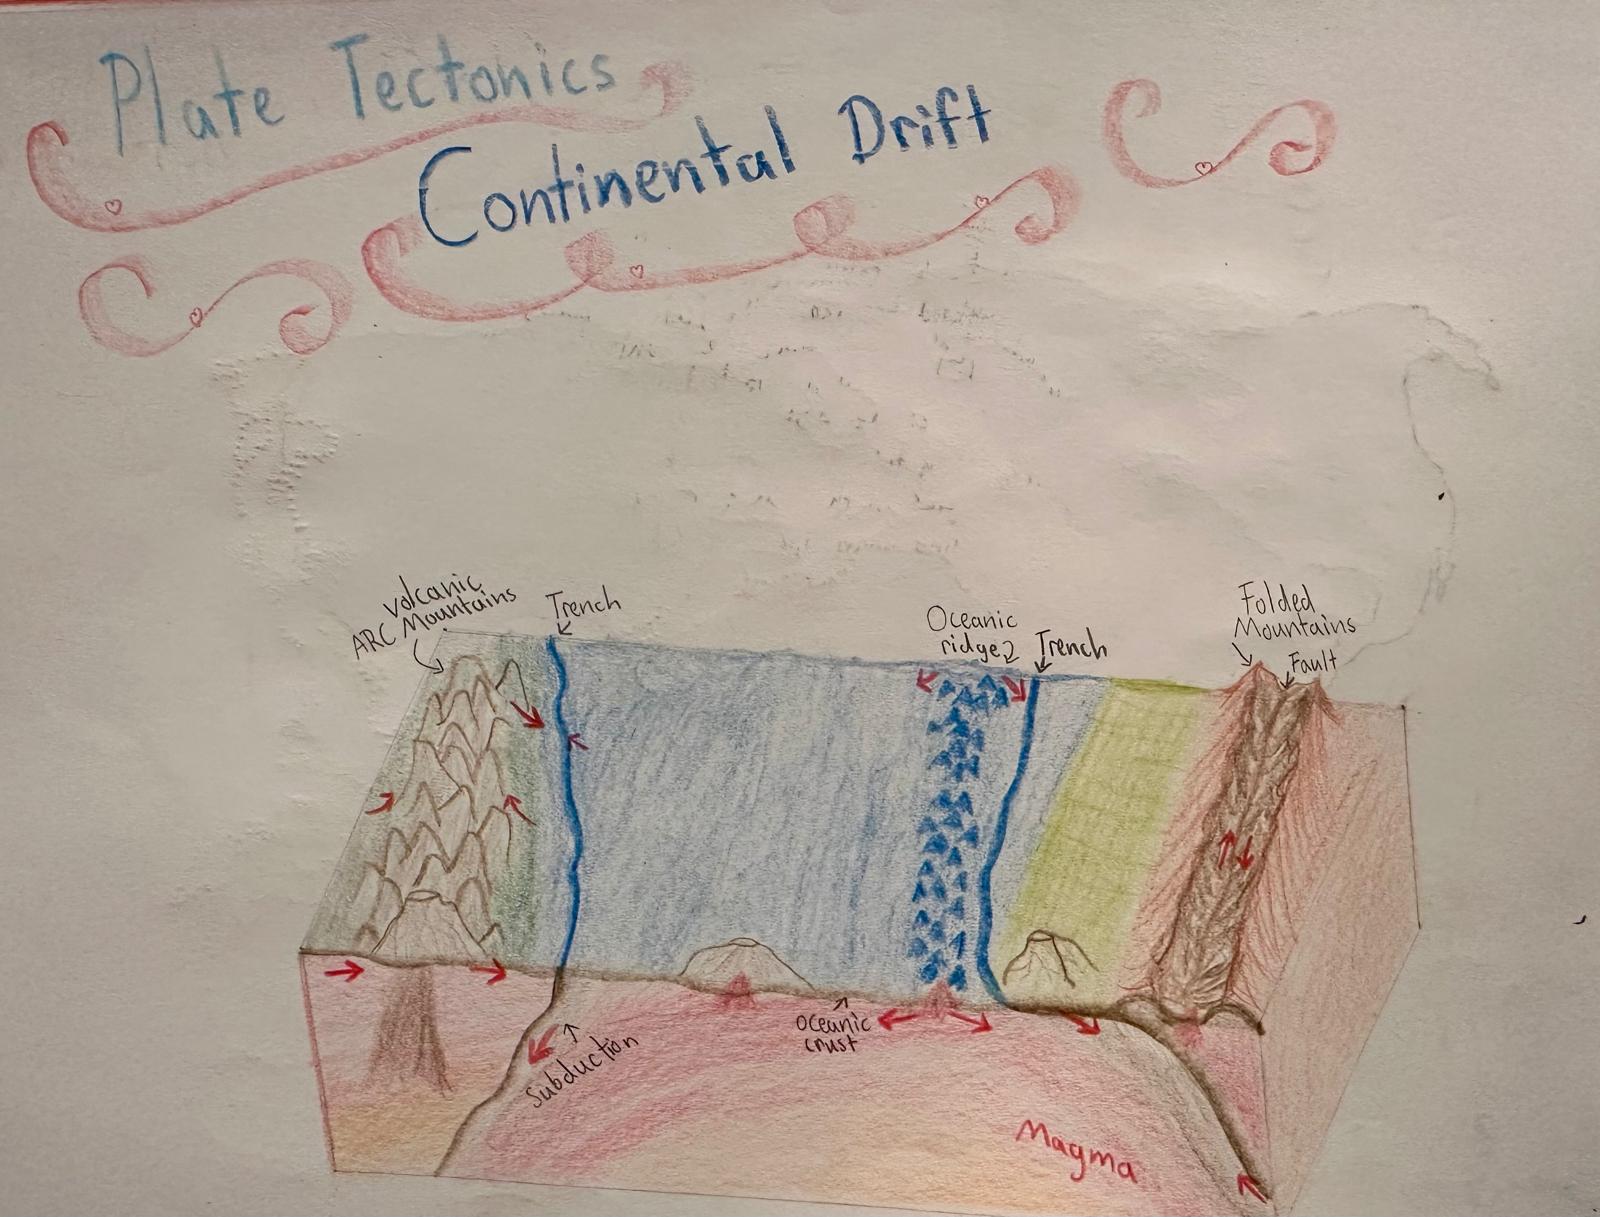 Plate Tectonics
Continental Drift
Volcanic
ARC Mountains
Trench
Oceanic
ridge
Trench
Folded
Mountains
Fault
Oceanic
crust
Subduction
Magma